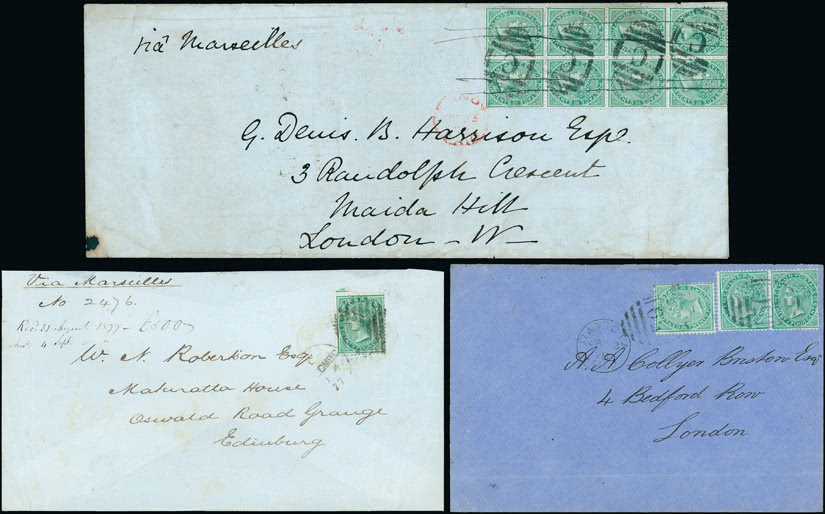 via Marseilles
G. Denis. B. Harrison Esqr.
3 Randolph Crescent
Maida Hill
London - W
Via Marseilles
No 2476.
Recd 31 August 1877 - £500
Ansd 4 Sept
W. N. Robertson Esq
Maturatta House
Oswald Road Grange
Edinburg
A. A. Collyer Bristow Esqr
4 Bedford Row
London